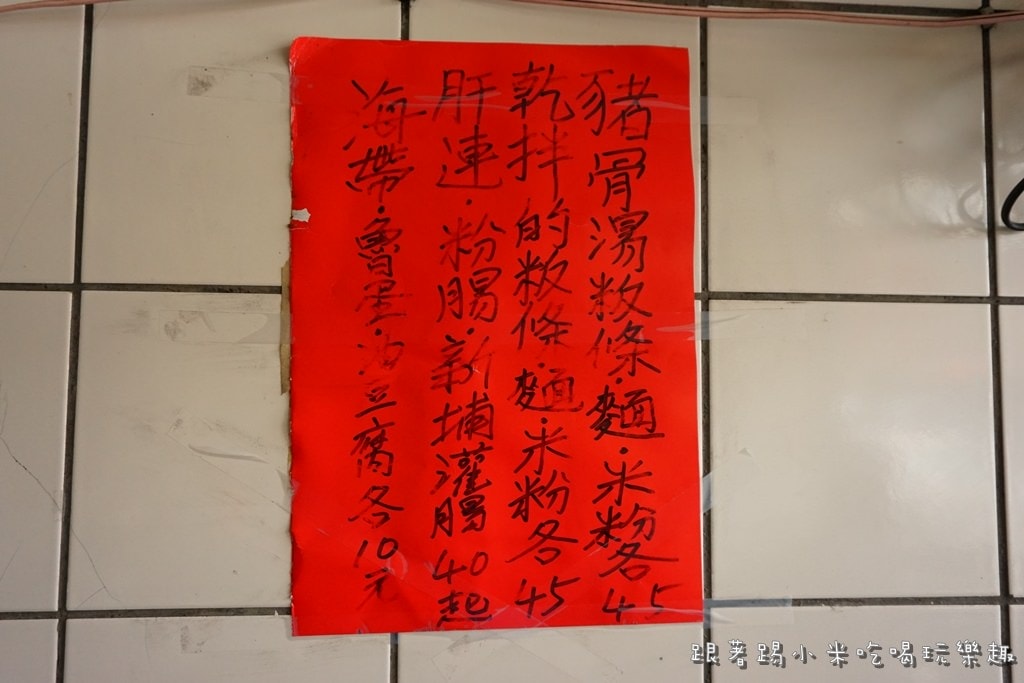 豬骨湯粄條·麵·米粉各45
乾拌的粄條·麵·米粉各45
肝連·粉腸·新埔灌腸40起
海帶·魯蛋·油豆腐各10元
跟著踢小米吃喝玩樂趣